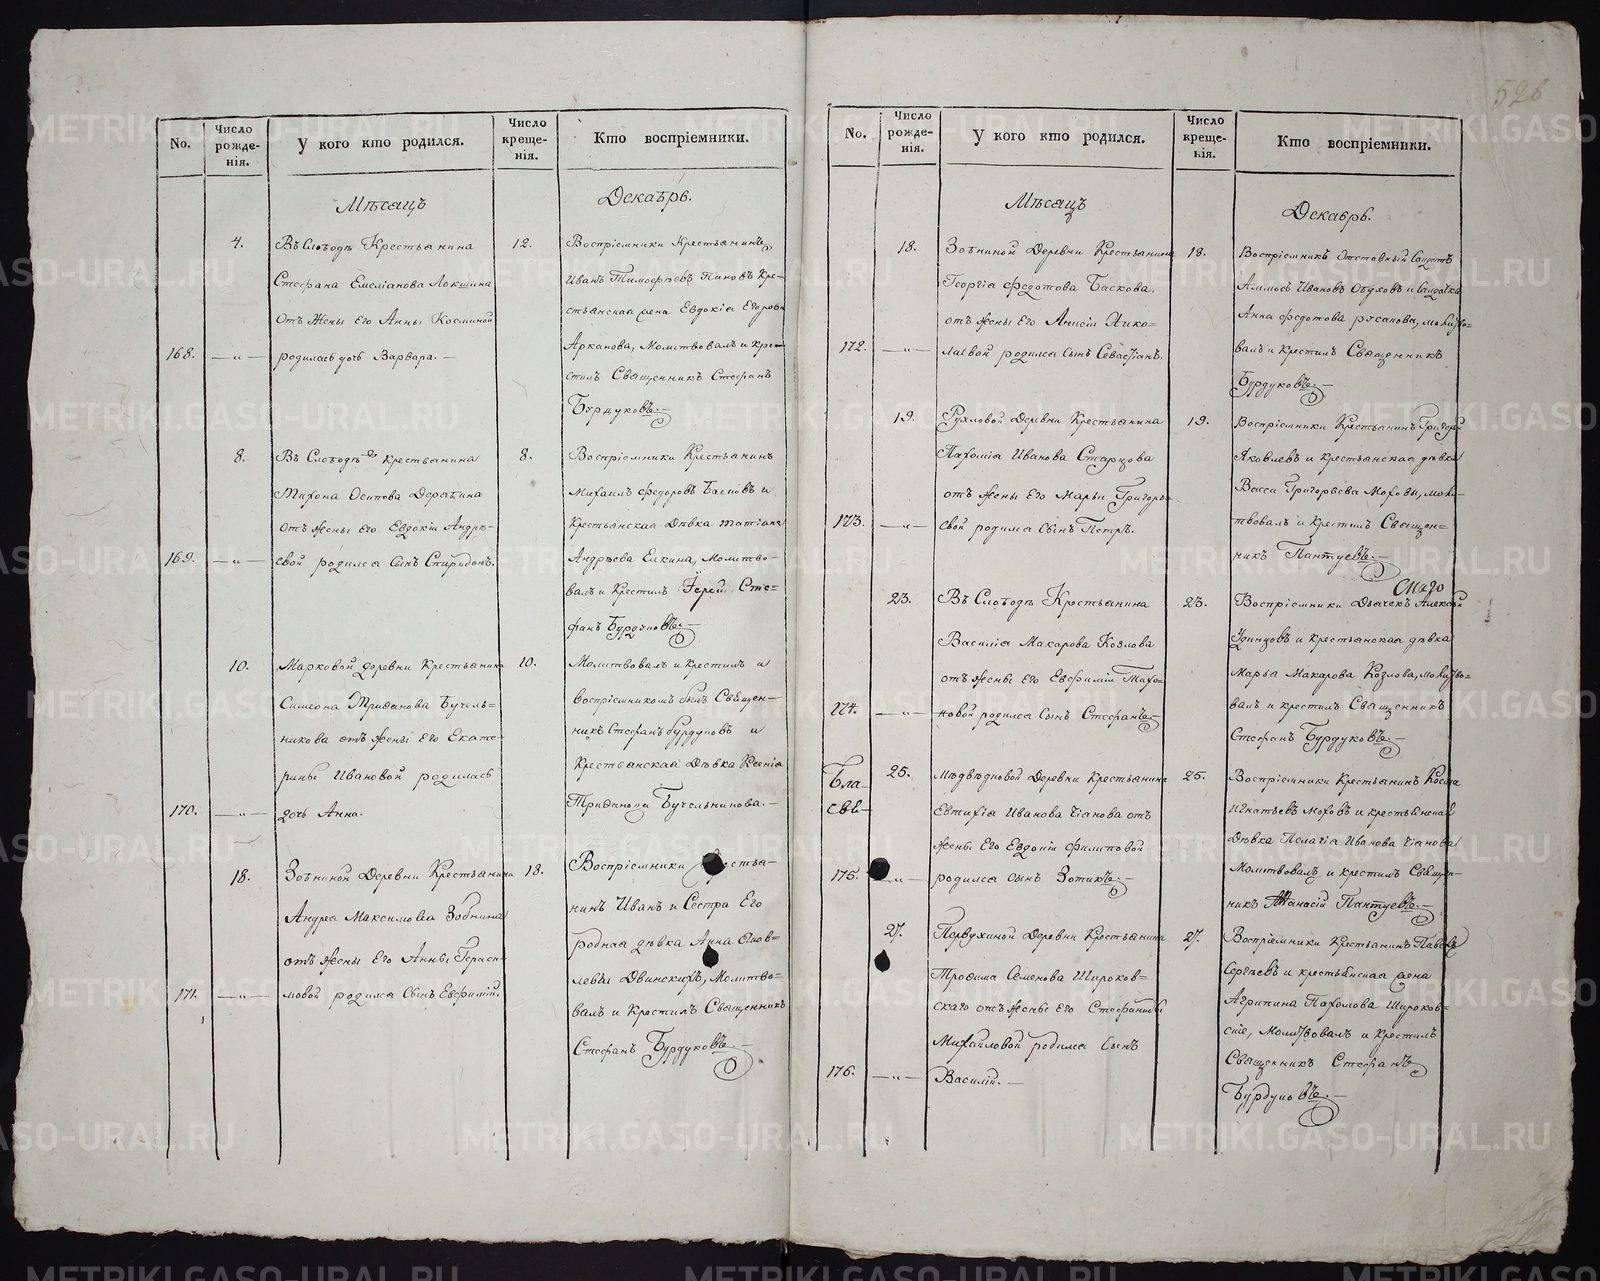 526
No.
Число рожде-нія.
У кого кто родился.
Число креще-нія.
Кто воспріемники.
Мѣсяцъ
Декабрь.
4.
Въ Слободѣ Крестьянина
Стефана Емеліанова Локшина
отъ жены его Анны Косминой
168.
родилась дочь Варвара.
12.
Воспріемники Крестьянинъ
Иванъ Тимофѣевъ Пановъ кре-
стьянская жена Евдокіа Егорова
Арканова, Молитвовалъ и кре-
стилъ Священникъ Стефанъ
Бурдуковъ.
8.
Въ Слободѣ Крестьянина
Тихона Осипова Дерябина
отъ жены его Евдокіи Андрѣ-
169.
евой родился сынъ Спиридонъ.
8.
Воспріемники Крестьянинъ
Михаилъ Федоровъ Басковъ и
крестьянская Дѣвка Татіана
Андрѣева Елкина, Молитво-
валъ и крестилъ Іерей Сте-
фанъ Бурдуковъ.
10.
Марковой деревни Крестьянина
Симеона Приданова Бучель-
никова отъ жены его Екате-
рины Ивановой родилась
170.
дочь Анна.
10.
Молитвовалъ и крестилъ и
воспріемникомъ былъ Священ-
никъ Стефанъ Бурдуковъ и
крестьянская Дѣвка Ксеніа
Бучельникова.
18.
Зобниной Деревни Крестьянина
Андрея Максимова Зобнина
отъ жены его Анны Гераси-
171.
мовой родился сынъ Евфимій.
18.
Воспріемники Крестья-
нинъ Иванъ и Сестра Его
родная дѣвка Анна Яков-
левы Двинскихъ, Молитво-
валъ и крестилъ Священникъ
Стефанъ Бурдуковъ.
No.
Число рожде-нія.
У кого кто родился.
Число креще-нія.
Кто воспріемники.
Мѣсяцъ
Декабрь.
18.
Зобниной Деревни Крестьянина
Георгіа Федотова Баскова.
отъ жены его Анисіи Нико-
172.
лаевой родился сынъ Севастіанъ.
18.
Воспріемникъ Отставный Салдатъ
Ивановъ Обуховъ и Салдатка
Анна Федотова Русанова, молитво-
валъ и крестилъ Священникъ
Бурдуковъ.
19.
Рухловой Деревни Крестьянина
Пахоміа Иванова Старцова
отъ жены его Марьи Григорье-
173.
евой родился сынъ Петръ.
19.
Воспріемники Крестьянинъ Григорій
Яковлевъ и крестьянская дѣвка
Васса Григорьева Моховы, моли-
твовалъ и крестилъ Священ-
никъ Пантуевъ.
23.
Въ Слободѣ Крестьянина
Василіа Макарова Козлова
отъ жены его Евфиміи Тихо-
174.
новой родился сынъ Стефанъ.
23.
Воспріемники Дьячекъ Алексѣй
Удинцовъ и крестьянская дѣвка
Марья Макарова Козлова, молитво-
валъ и крестилъ Священникъ
Стефанъ Бурдуковъ.
25.
Мѣдвѣдцовой Деревни Крестьянина
Евтихіа Иванова отъ
жены его Евдокіи Филиповой
175.
родился сынъ Зотикъ.
25.
Воспріемники Крестьянинъ Косма
Игнатьевъ Моховъ и крестьянская
Дѣвка Пелагіа Иванова
Молитвовалъ и крестилъ Священ-
никъ Афанасій Пантуевъ.
27.
Первухиной Деревни Крестьянина
Трофима Семенова Широков-
скаго отъ жены его Стефаниды
Михайловой родился сынъ
176.
Василій.
27.
Воспріемники Крестьянинъ Павелъ
Сергѣевъ и крестьянская жена
Агрипина Пахомова Широков-
скіе, Молитвовалъ и крестилъ
Священникъ Стефанъ
Бурдуковъ.
METRIKI.GASO-URAL.RU